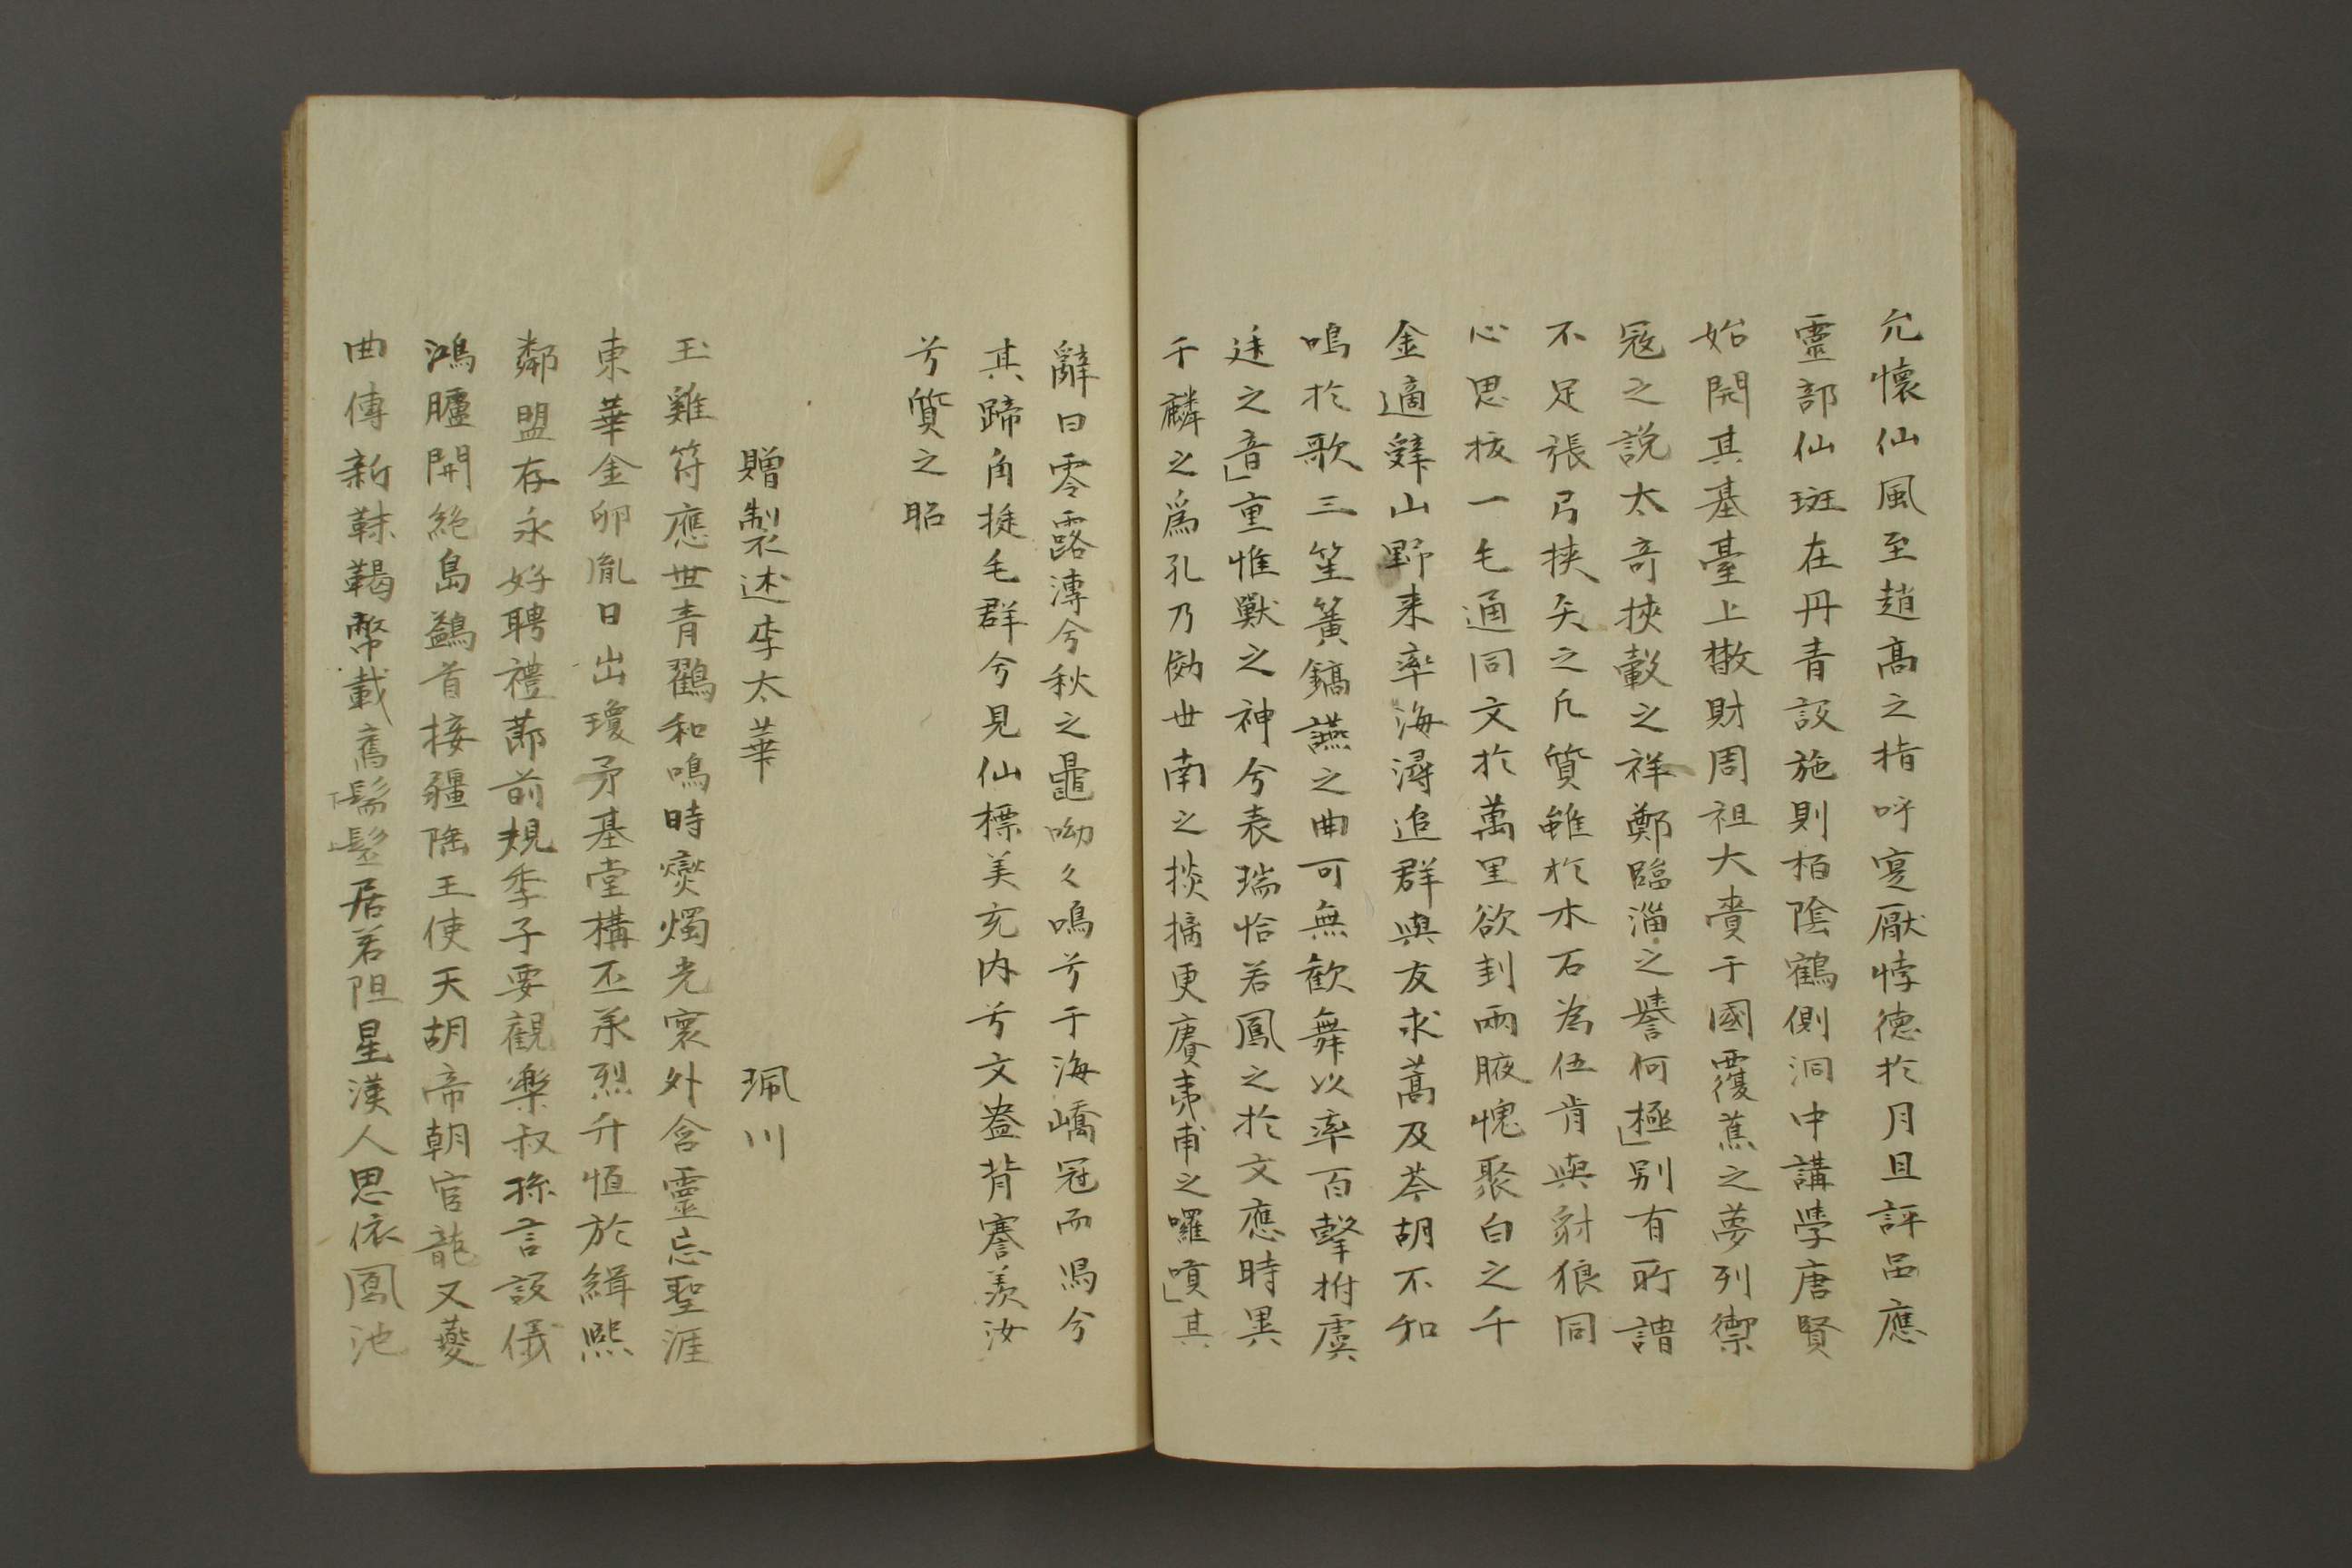 允懷仙風至趙髙之指呼寔厭悖德於月且評品應
靈部仙斑在丹青設施則栢陰鶴側洞中講學唐賢
始開其基臺上散財周祖大賚于國覆蕉之夢列禦
寇之說太奇挾轂之祥鄭臨淄之譽何極」别有所謂
不足張弓挾矢之凡質雖於木石為伍肯與豺狼同
心思核一毛通同文於萬里欲封兩腋愧聚白之千
金適辭山野来率海潯追群與友求蒿及芩胡不和
鳴於歌三笙簧鎬讌之曲可無歡舞以率百聲拊虞
廷之音」重惟獸之神兮表瑞恰若鳳之於文應時異
千麟之爲孔乃効世南之掞摛更賡韋甫之囉嗊」其
辭曰零露漙兮秋之曍呦々鳴兮于海嶠冠而舄兮
其蹄角挺毛群兮見仙標美充内兮文盎背謇羨汝
兮質之昭
贈製述李太華 珮川
玉雞符應世青鸖和鳴時爕燭光寰外含靈忘聖涯
東華金卯胤日出瓊矛基堂構丕承烈升恒於緝熙
鄰盟存永好聘禮蔀前規季子要觀樂叔孫言設儀
鴻臚開絶島鷁首接疆陲王使天胡帝朝官龍又夔
曲傳新靺鞨幣載舊髵髬居若阻星漢人思依鳳池